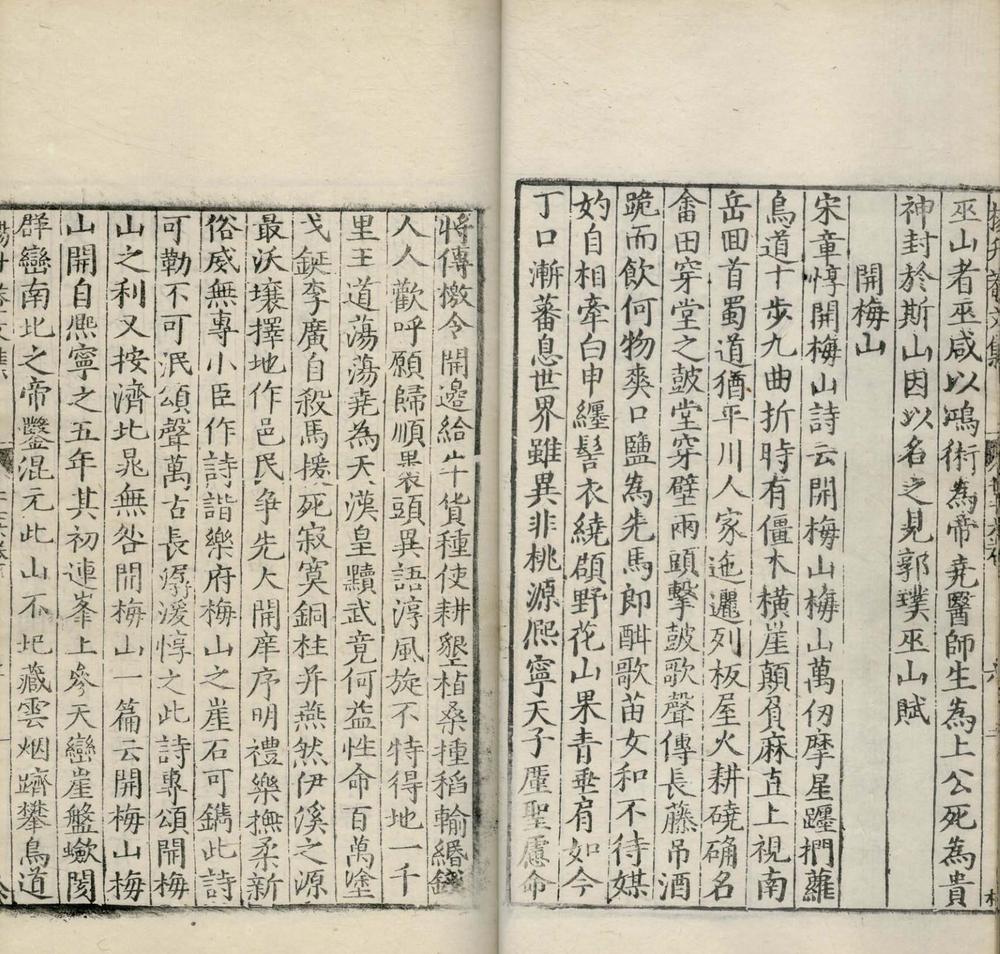 巫山者巫咸以鴻術為帝堯醫師生為上公死為貴
神封於斯山因以名之見郭璞巫山賦
開梅山
宋章惇開梅山詩云開梅山梅山萬仞摩星躔捫蘿
鳥道十步九曲折時有僵木横崖顛負麻直上視南
岳回首蜀道猶平川人家迤邐列板屋火耕磽确名
畬田穿堂之鼓堂穿壁兩頭擊鼓歌聲傳長藤吊酒
跪而飲何物爽口鹽為先馬郎酣歌苗女和不待媒
妁自相牽白申纏髻衣繞頋野花山果青垂肩如今
丁口漸蕃息世界雖異非桃源熈寧天子厪聖慮命
將傳檄令開邊給牛貨種使耕墾植桑種稻輸緡錢
人人歡呼願歸順裹頭異語淳風旋不特得地一千
里王道蕩蕩堯為天漢皇黷武竟何益性命百萬塗
戈鋋李廣自殺馬援死寂寞銅柱并燕然伊溪之源
最沃壤擇地作邑民争先大開庠序明禮樂撫柔新
俗威無專小臣作詩諧樂府梅山之崖石可鐫此詩
可勒不可泯頌聲萬古長潺湲惇之此詩專頌開梅
山之利又按濟北晁無咎開梅山一篇云開梅山梅
山開自熈寧之五年其初連峯上參天巒崖盤嶮閡
群巒南北之帝鑿混元此山不圯藏雲烟躋攀鳥道